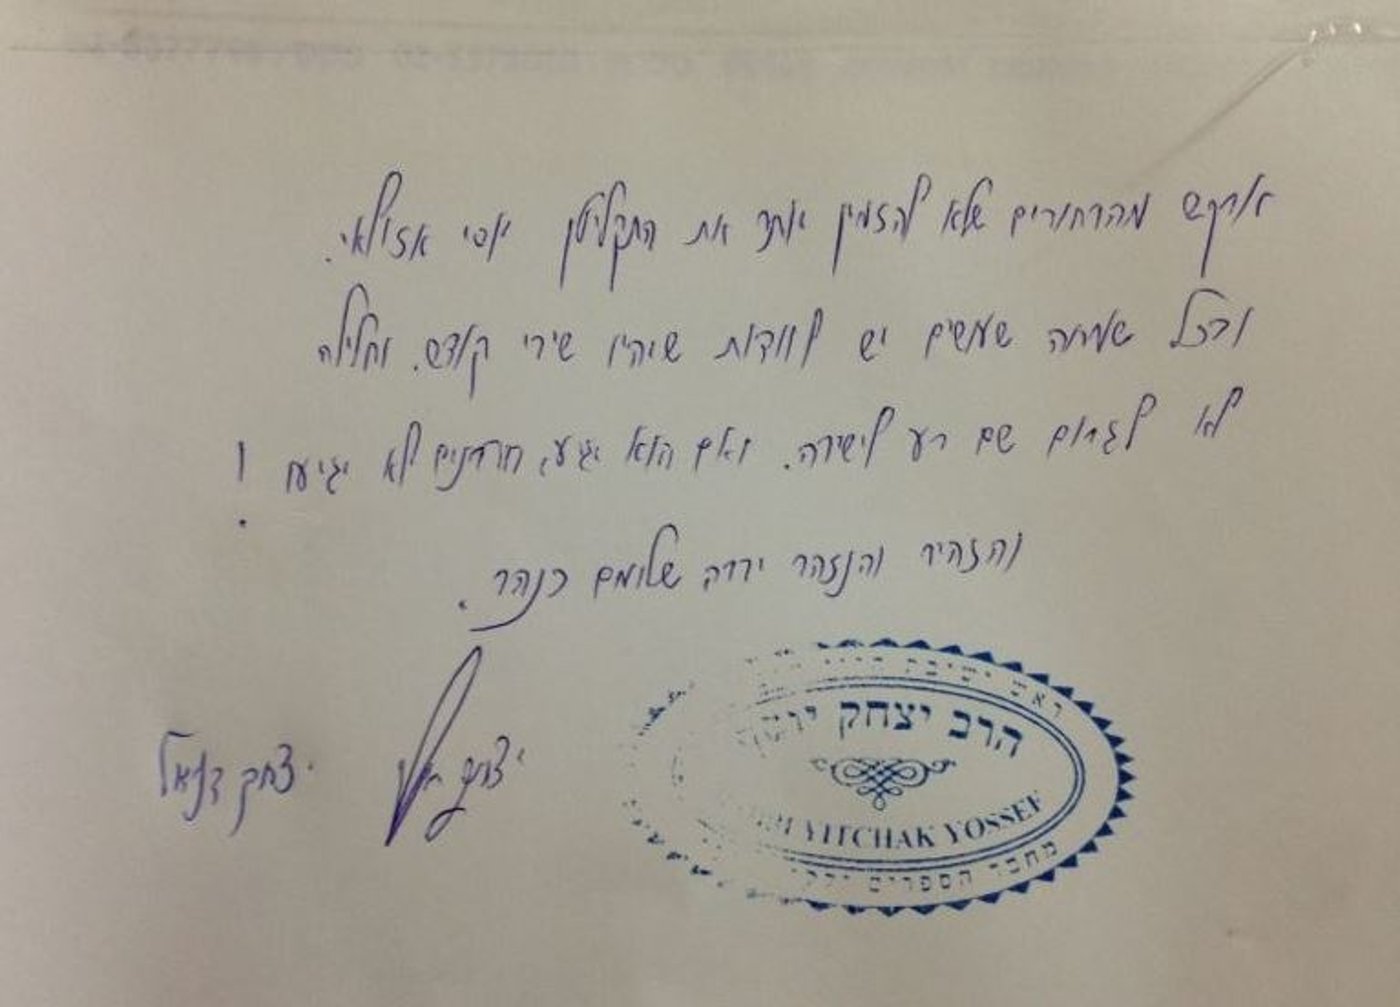 אבקש מהבחורים שלא להזמין יותר את התקליטן יוסי אזולאי.
ובכל שמחה שעושים יש לוודאות שיהיו שירי קודש. וחלילה
לא לגרום שם רע לישיבה. ואם הוא יגיע, הרבנים לא יגיעו!
והזהיר והנזהר ירבה שלומם כנהר.
יצחק דניאל
ראש ישיבת
הרב יצחק יוסף
YITCHAK YOSSEF
מחבר הספרים ילקו